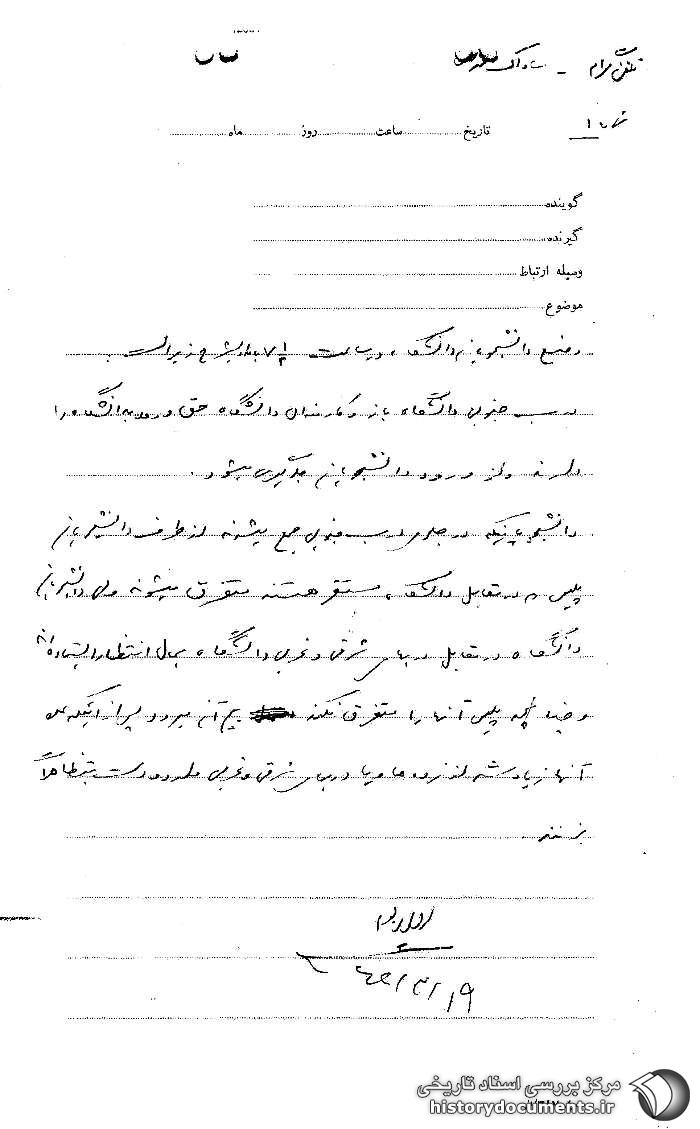 تلفنگرام - ساواک
شماره ۱
تاریخ ساعت روز ماه
گوینده
گیرنده
وسیله ارتباط
موضوع
وضع دانشجویان دانشگاه در ساعت بشرح زیر است
درب جنوبی دانشگاه باز و کارمندان دانشگاه حق ورود بدانشگاه را
دارند ولی از ورود دانشجویان جلوگیری میشود.
دانشجویانیکه در جلوی درب جنوبی جمع میشوند از طرف
پلیس که در مقابل دانشگاه مستقر هستند متفرق میشوند ولی دانشجویان
دانشگاه در مقابل دربهای شرقی و غربی دانشگاه بحال انتظار ایستاده‌اند
و چنانچه پلیس آنها را متفرق نکند بیم آن میرود پس از اینکه عده
آنها زیاد شد از نرده‌ها و یا دربهای شرقی و غربی وارد و دست بتظاهرات
بزنند.
مرکز بررسی اسناد تاریخی
historydocuments.ir